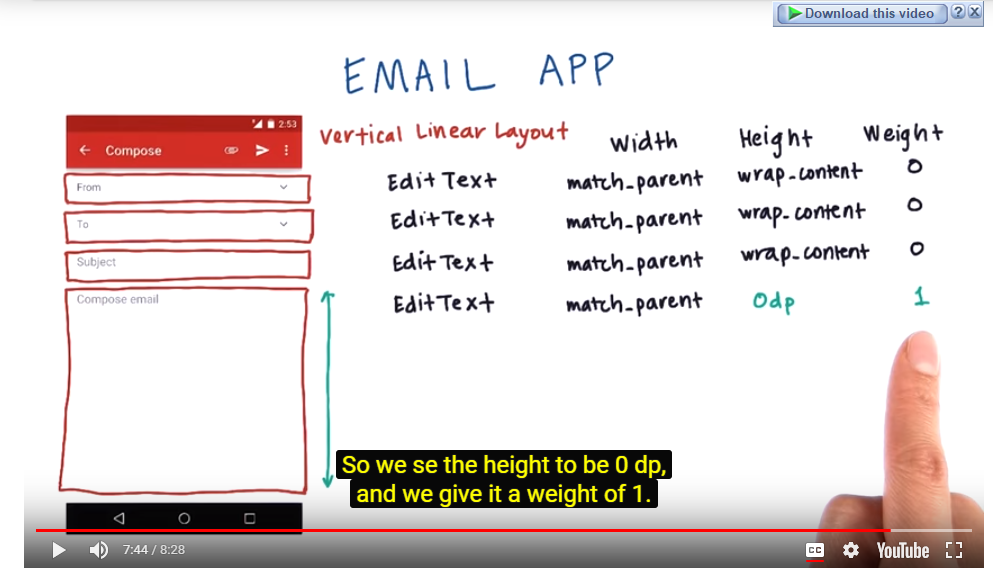 Download this video ? X
EMAIL APP
2:53
Compose
From
To
Subject
Compose email
Vertical Linear Layout Width Height Weight
EditText match_parent wrap_content 0
EditText match_parent wrap_content 0
EditText match_parent wrap_content 0
EditText match_parent 0dp 1
So we se the height to be 0 dp,
and we give it a weight of 1.
7:44 / 8:28 CC YouTube